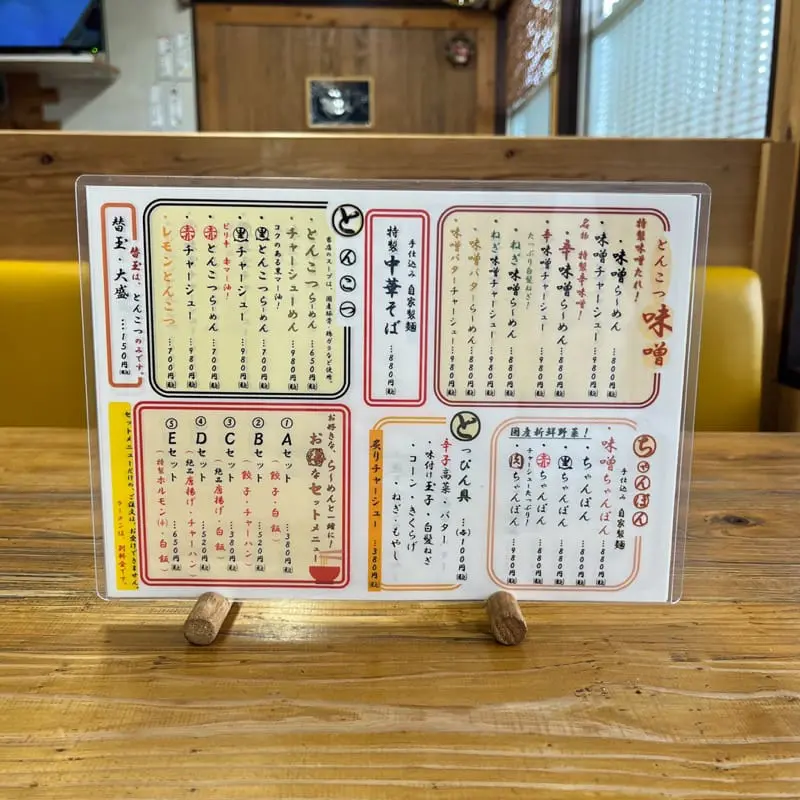 とんこつ 味噌
特製味噌だれ!
・味噌らーめん …800円
・味噌チャーシュー …980円
名物 特製辛味噌!
・辛味噌らーめん …880円
・辛味噌チャーシュー …980円
たっぷり白髪ねぎ!
・ねぎ味噌らーめん …880円
・ねぎ味噌チャーシュー …980円
・味噌バターらーめん …880円
・味噌バターチャーシュー …980円
手仕込み 自家製麺
特製 中華そば …880円
とんこつ
当店のスープは、国産豚骨、鶏ガラなど使用。
・とんこつらーめん …650円
・チャーシューめん …980円
コクのある黒マー油!
・黒とんこつらーめん …700円
・黒チャーシュー …980円
ピリ辛 赤マー油!
・赤とんこつらーめん …700円
・赤チャーシュー …980円
・レモンとんこつ …700円
替玉は、とんこつのみです。
替玉・大盛 …150円
ちゃんぽん
手仕込み 自家製麺
・味噌ちゃんぽん …880円
国産新鮮野菜!
・ちゃんぽん …880円
・黒ちゃんぽん …880円
・赤ちゃんぽん …880円
チャーシューたっぷり!
・肉ちゃんぽん …980円
とっぴん具 …各100円
・辛子高菜・バター
・味付け玉子・白髪ねぎ
・コーン・きくらげ
・ねぎ・もやし
炙りチャーシュー …380円
お好きな、らーめんと一緒に!
お得なセットメニュー
① Aセット …380円
(餃子・白飯)
② Bセット …520円
(餃子・チャーハン)
③ Cセット …380円
(絶品唐揚げ・白飯)
④ Dセット …520円
(絶品唐揚げ・チャーハン)
⑤ Eセット …650円
(特製ホルモン(小)・白飯)
セットメニューだけの、ご注文は、お受けできません。
ラーメンは、別料金です。